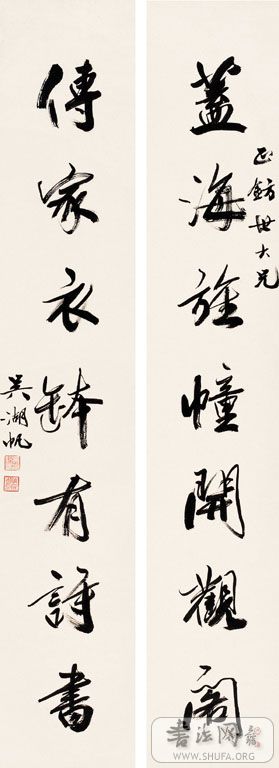 蓋海旌幢開觀閣
正鈁世大兄
傳家衣鉢有詩書
吳湖帆
書法网
WWW.SHUFA.ORG